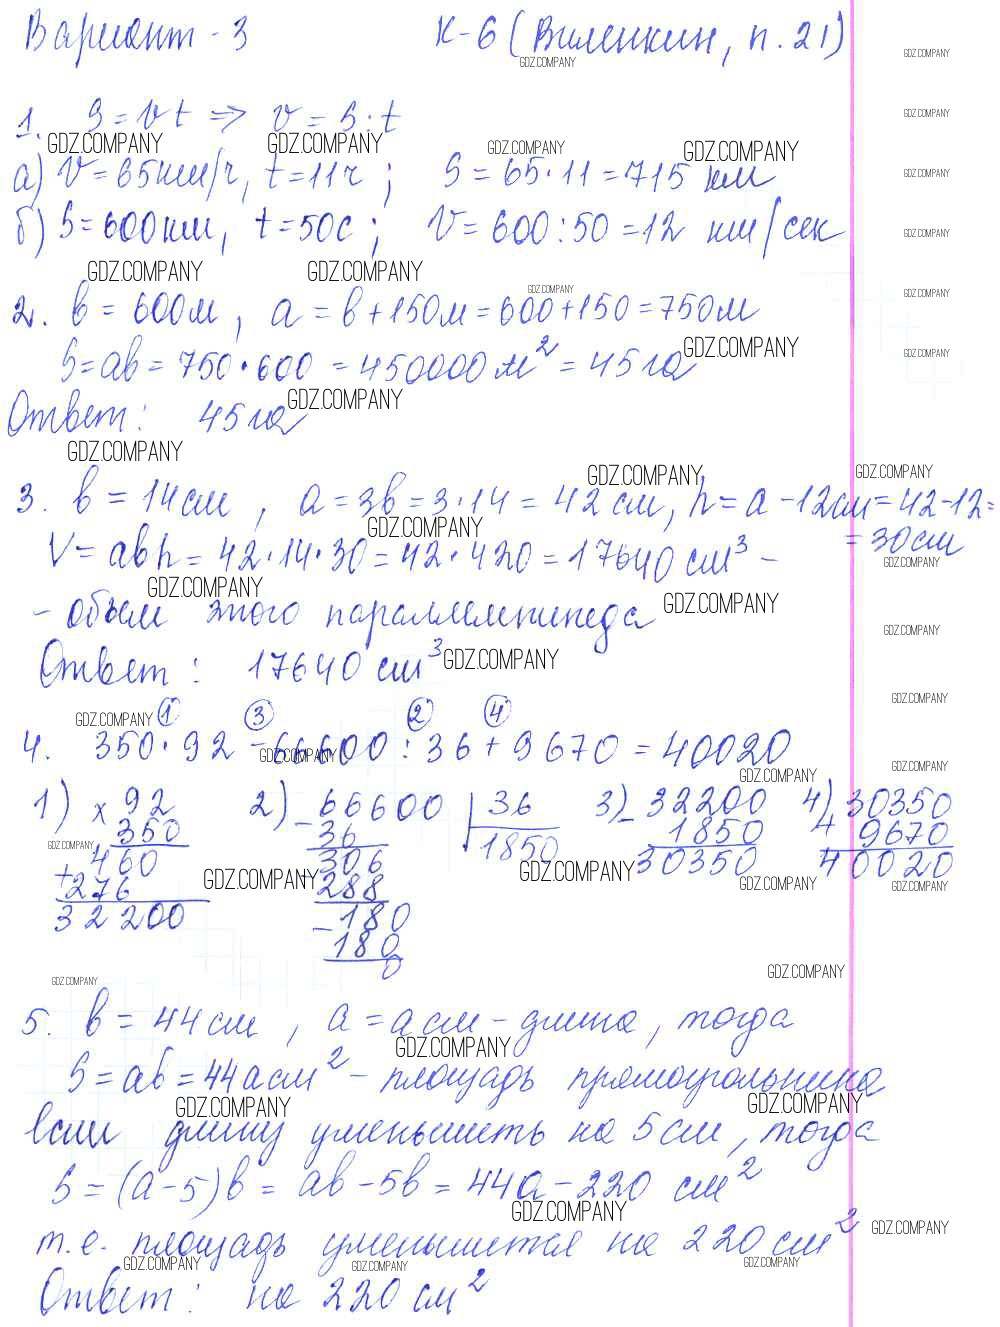 Вариант - 3 К-6 (Виленкин, п. 21)
1. S = vt => v = S : t
а) v = 65 км/ч, t = 11 ч ; S = 65 · 11 = 715 км
б) S = 600 км, t = 50 с ; V = 600 : 50 = 12 км/сек
2. b = 600 м, a = b + 150 м = 600 + 150 = 750 м
S = ab = 750 · 600 = 450000 м² = 45 га
Ответ: 45 га
3. b = 14 см, a = 3b = 3 · 14 = 42 см, h = a - 12 см = 42 - 12 =
= 30 см
V = abh = 42 · 14 · 30 = 42 · 420 = 17640 см³ -
- объем этого параллелепипеда
Ответ: 17640 см³
① ③ ② ④
4. 350 · 92 - 66600 : 36 + 9670 = 40020
1) × 92 2) - 66600 | 36 3) - 32200 4) 30350
350 36 1850 1850 + 9670
460 306 30350 40020
+ 276 288
32200 - 180
180
0
5. b = 44 см, a = a см - длина, тогда
S = ab = 44a см² - площадь прямоугольника
Если длину уменьшить на 5 см, тогда
S = (a - 5) b = ab - 5b = 44a - 220 см²
т.е. площадь уменьшится на 220 см²
Ответ: на 220 см²
GDZ.COMPANY